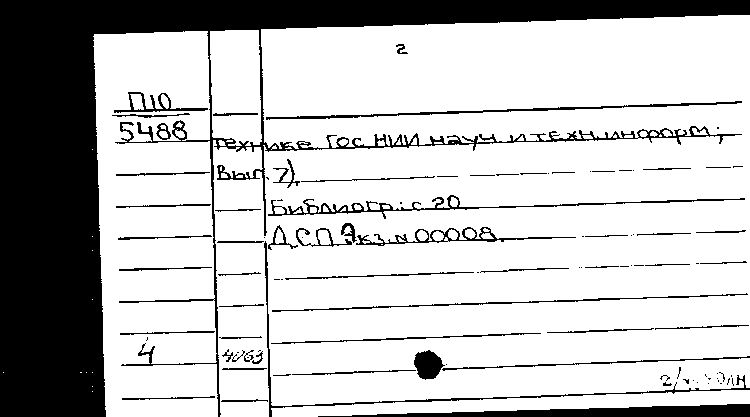 2
П10
5488
технике Гос НИИ науч. и техн. информ;
Вып. 7).
Библиогр.: с 20
ДСП Экз. N 00008.
4
4063
2/